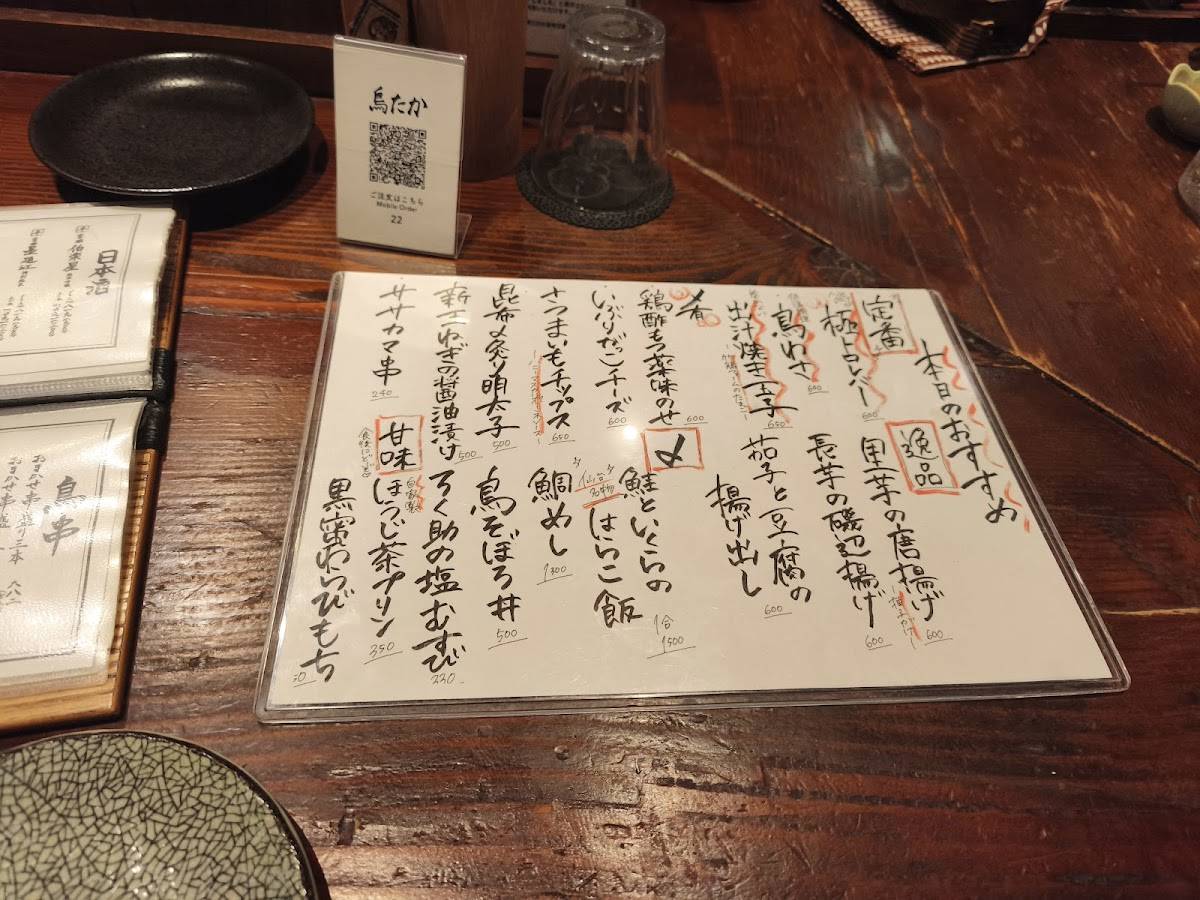 鳥たか
ご注文はこちら
Mobile Order
22
日本酒
鳥串
おまかせ串盛り三本
本日のおすすめ
定番
極上レバー
600
鳥わさ
600
出汁焼き玉子
650
肴
鶏酢もつ薬味のせ
600
いぶりがっこチーズ
600
さつまいもチップス
650
昆布〆炙り明太子
500
新玉ねぎの醤油漬け
500
ササカマ串
240
逸品
里芋の唐揚げ
600
長芋の磯辺揚げ
600
茄子と豆腐の
揚げ出し
600
〆
鮭といくらの
仙台名物
はらこ飯
1合
1500
鯛めし
1300
鳥そぼろ丼
500
ろく助の塩むすび
230
甘味
自家製
ほうじ茶プリン
350
黒蜜わらびもち